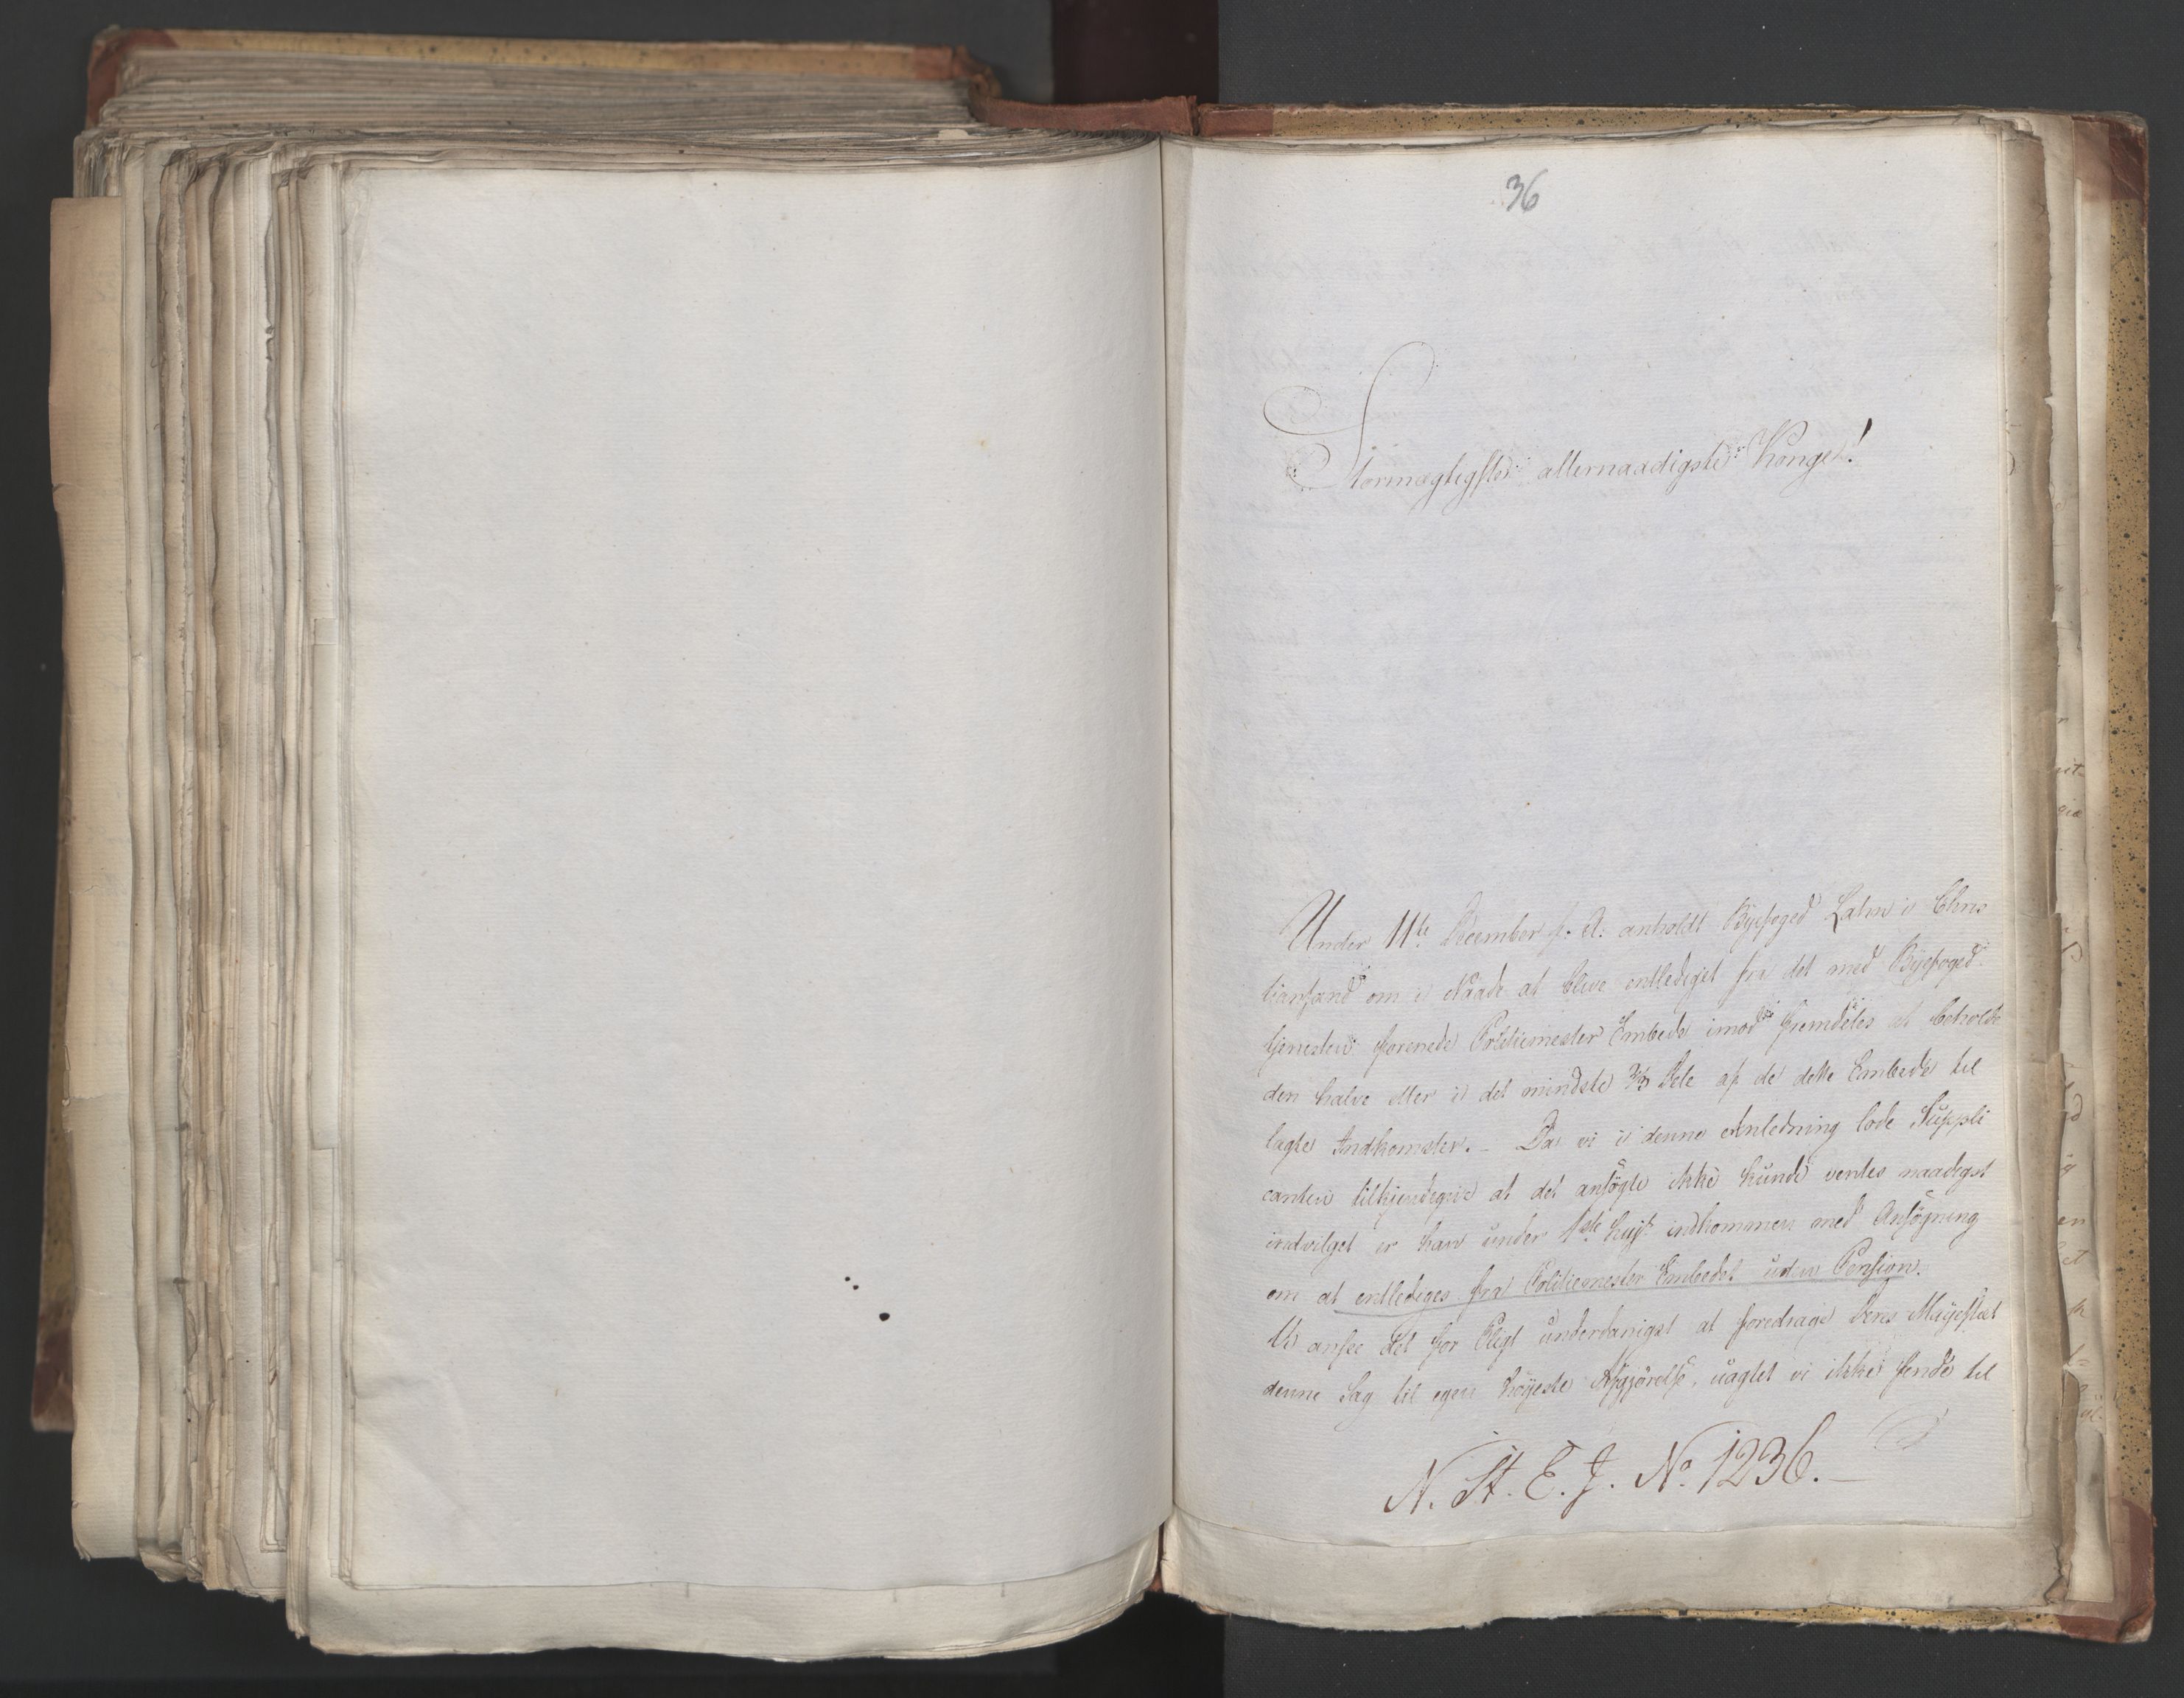 36
Stormægtigster allernaadigste Konge!
Under 11te December f. A. anholdt Byefoged Lahn i Chris
tiansand om i Naade at blive entlediget fra det med Byefoged
tjenesten forenede Politiemester Embede imod fremdeles at beholde
den halve eller i det mindste 2/3 Dele af de dette Embede til
lagte Indkomster. – Da vi i denne Anledning lode Suppli
canten tilkjendegive at det ansögte ikke kunde ventes naadigst
indvilget er han under 1ste hujs indkommen med Ansögning
om at entlediges fra Politiemester Embedet uden Pension.
Vi ansee det for Pligt underdanigst at foredrage Deres Majestæt
denne Sag til egen höyeste Afgjörelse, uagtet vi ikke finde til
N. St. E. J. No. 1236. –